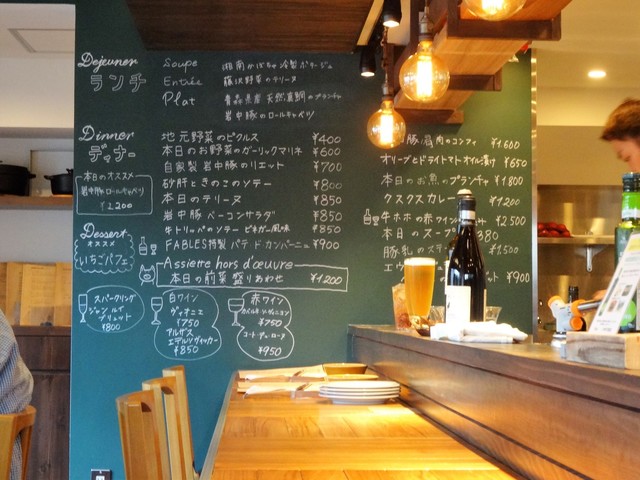 Dejeuner
ランチ
Soupe 湘南かぼちゃ 冷製ポタージュ
Entrée 藤沢野菜のテリーヌ
Plat 青森県産 天然真鯛のプランチャ
岩中豚のロールキャベツ
Dinner
ディナー
本日のオススメ
岩中豚ロールキャベツ
¥2,200
地元野菜のピクルス ¥400
本日のお野菜のガーリックマリネ ¥600
自家製 岩中豚のリエット ¥700
砂肝ときのこのソテー ¥800
本日のテリーヌ ¥850
岩中豚 ベーコンサラダ ¥850
牛トリッパのソテー ビネガー風味 ¥850
FABLES特製 パテ ド カンパーニュ ¥900
Assiette hors d'œuvre
本日の前菜 盛りあわせ ¥1200
Dessert
オススメ
いちごパフェ
スパークリング
ジャン ルイ
ブリュット
¥800
白ワイン
ヴィオニエ
¥750
アルザス
エデルツヴィッカー
¥850
赤ワイン
¥750
コート・デュ・ローヌ
¥950
豚肩肉のコンフィ ¥1,600
オリーブとドライトマトオイル漬け ¥650
本日のお魚のプランチャ ¥1,800
クスクスカレー ¥1,200
牛ホホの赤ワイン ¥2,500
本日のスープ 380
豚乳のステ ¥1,500
エ
ット ¥900